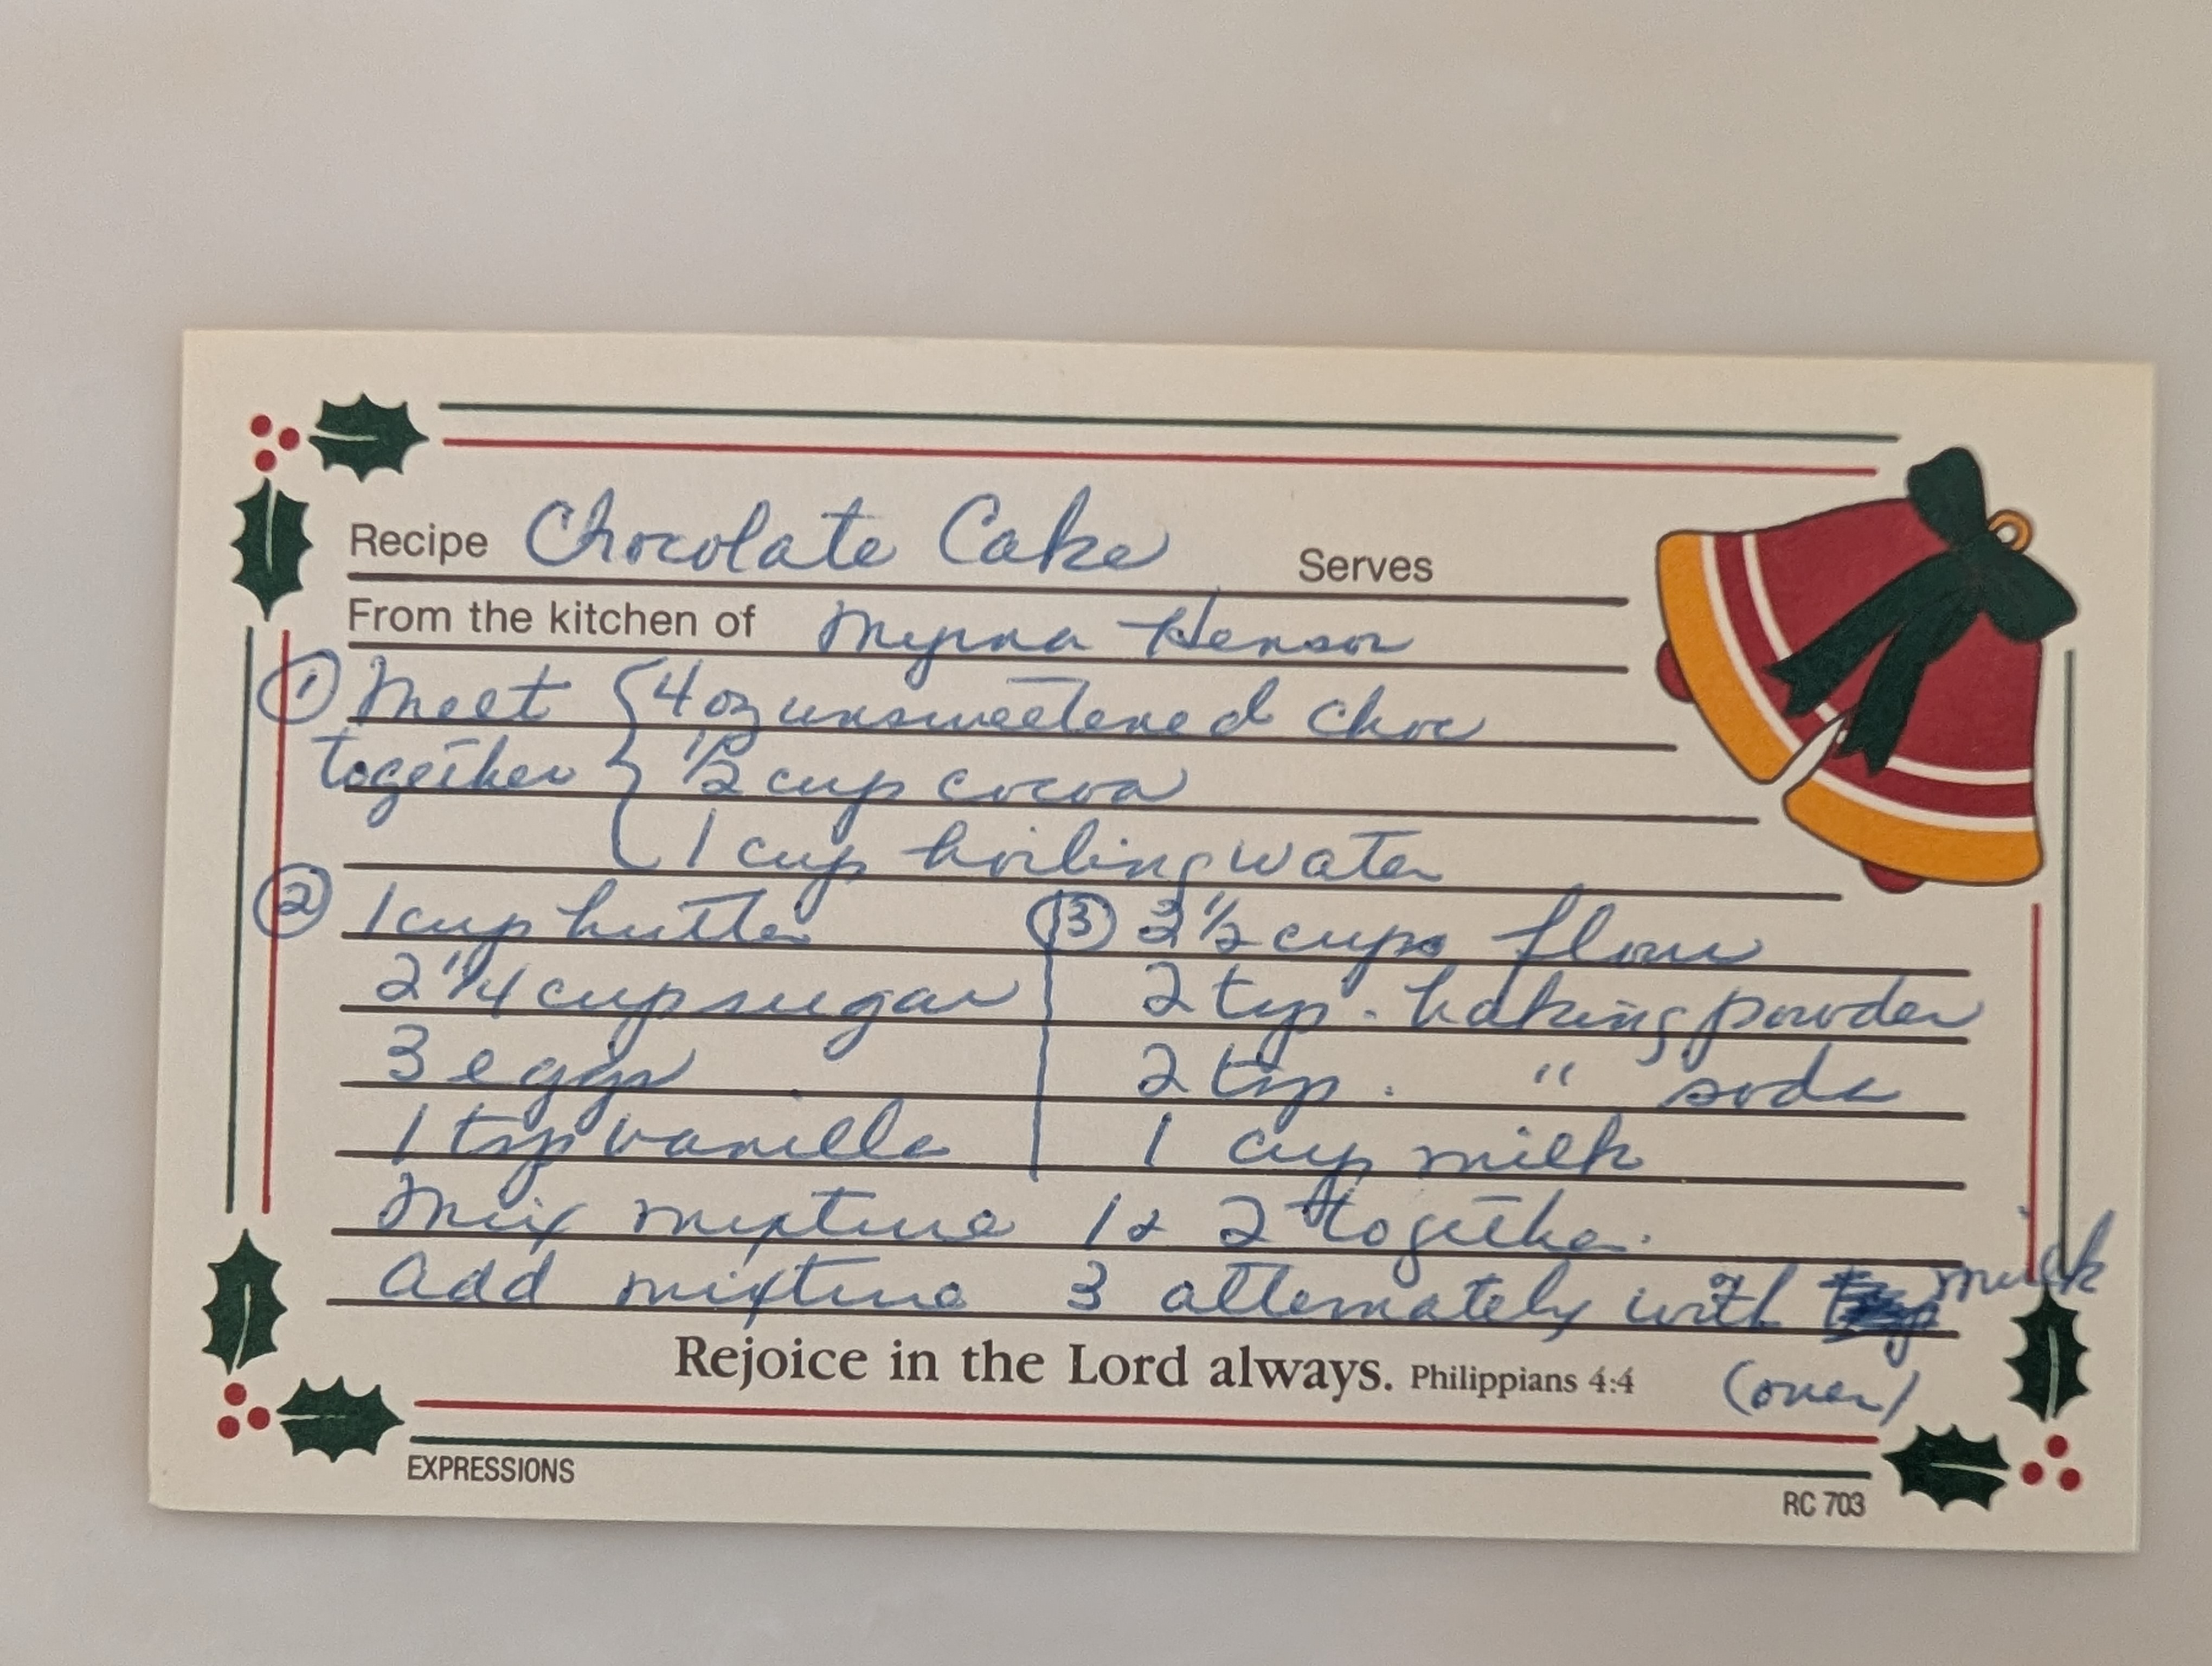 Recipe Chocolate Cake Serves
From the kitchen of Myrna Henson
① Melt { 4 oz unsweetened choc
together 1/2 cup cocoa
1 cup boiling water
② 1 cup butter ③ 2 1/2 cups flour
2 1/4 cup sugar 2 tsp. baking powder
3 eggs 2 tsp. " soda
1 tsp vanilla 1 cup milk
Mix mixture 1 & 2 together.
Add mixture 3 alternately with milk
Rejoice in the Lord always. Philippians 4:4 (over)
EXPRESSIONS
RC 703